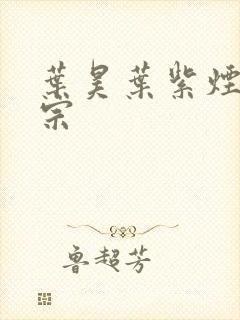 葉昊葉紫煙
宗
魯超芳